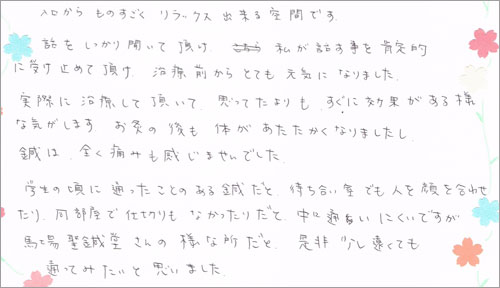 入口から ものすごく リラックス 出来る空間です.
話を しっかり聞いて 頂け. 私が話す事を肯定的
に受け止めて頂け. 治療前からとても 元気に なりました.
実際に 治療して 頂いて. 思ってたよりも. すぐに効果がある様
な気がします. お灸の後も 体が あたたかくなりましたし.
鍼は. 全く痛みも感じませんでした.
学生の頃に通ったことのある鍼だと. 待ち合い室でも人を顔を合わせ
たり. 同部屋で仕切りも なかったりだと. 中に通いにくいですが
馬場聖鍼堂さんの様な所だと. 是非 少し遠くても
通ってみたいと思いました.